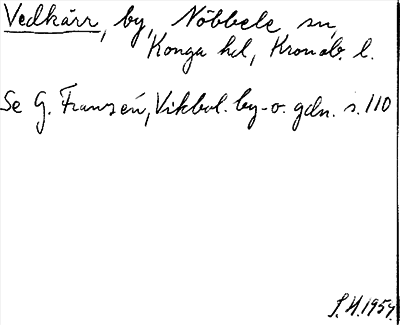 Vedkärr, by, Nöbbele sn,
Konga hd, Kronob. l.
Se G. Franzén, Vikbol. by- o. gdn. s. 110
S.H. 1954.